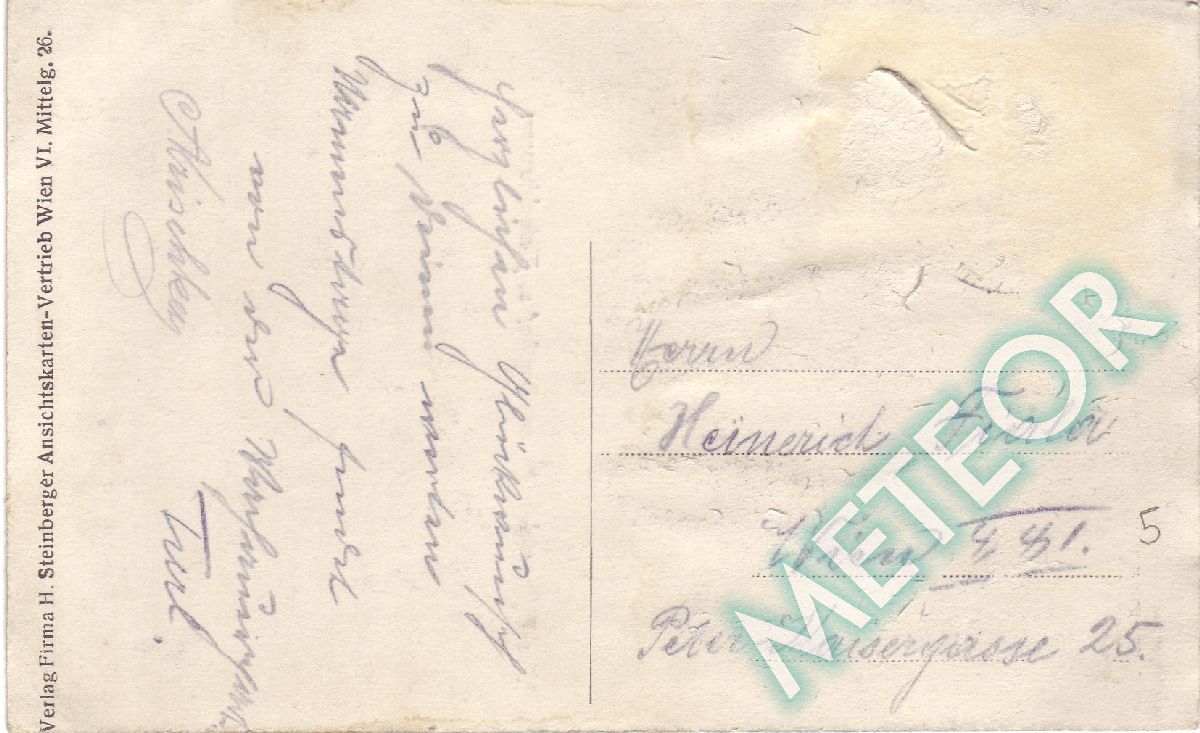 Verlag Firma H. Steinberger Ansichtskarten-Vertrieb Wien VI. Mittelg. 26.
Herzlichen Glückwunsch
zu Deinem werten
Namenstage sendet
von der
Turl.
Herrn
Heinerich
Wien XXI.
5
Peter Kaisergasse 25.
METEOR